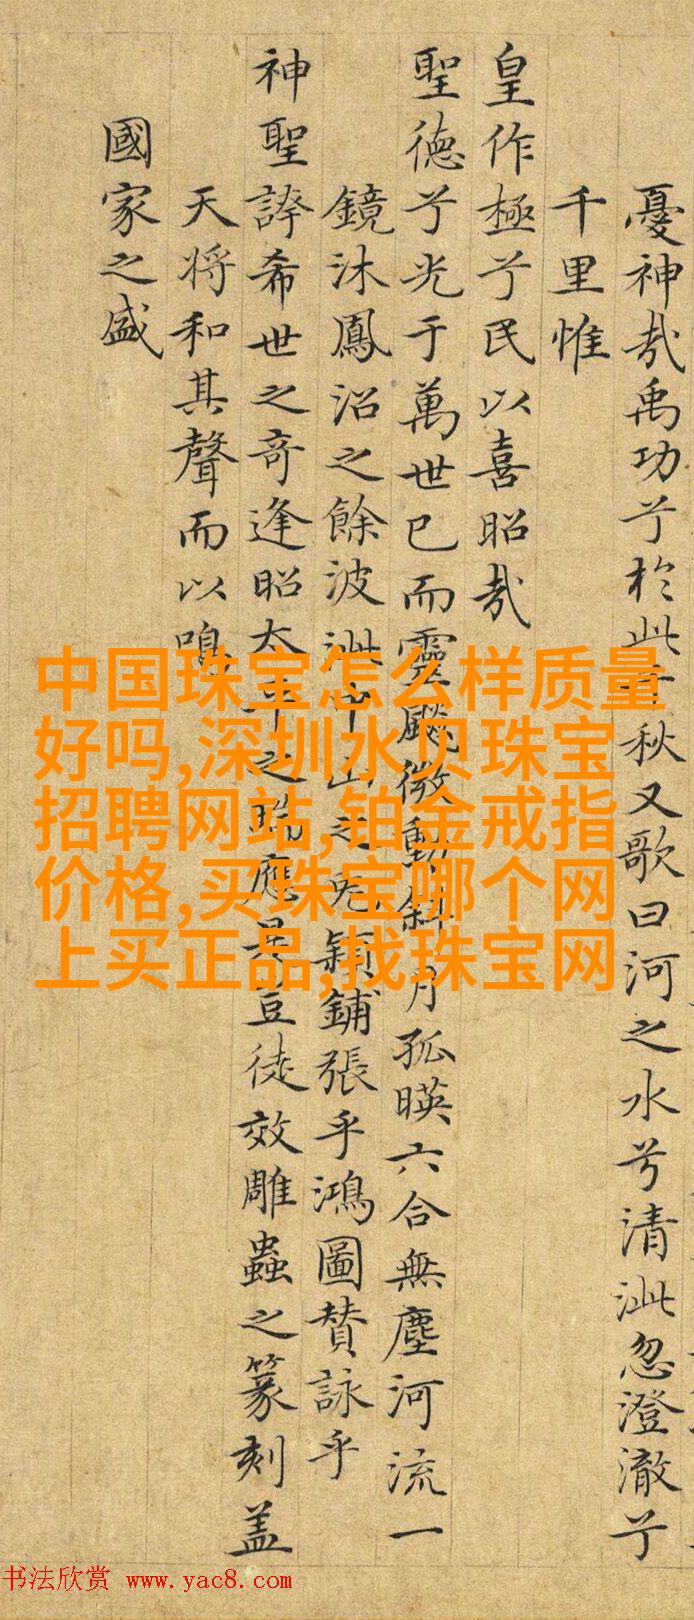 憂神哉禹功兮於此千秋又歌曰河之水兮清泚忽澄澈兮
千里惟
皇作極兮民以喜昭哉
聖德兮光于萬世已而靈飈微動斜月孤暎六合無塵河流一
鏡沐鳳沼之餘波泚中山之兔穎鋪張乎鴻圖贊詠乎
神聖誇希世之奇逢昭太平之瑞應
豈徒效雕蟲之篆刻盖
天将和其聲而以鳴
國家之盛
中国珠宝怎么样质量
好吗,深圳水贝珠宝
招聘网站,铂金戒指
价格,买珠宝哪个网
上买正品,找珠宝网
书法欣赏 www.yac8.com